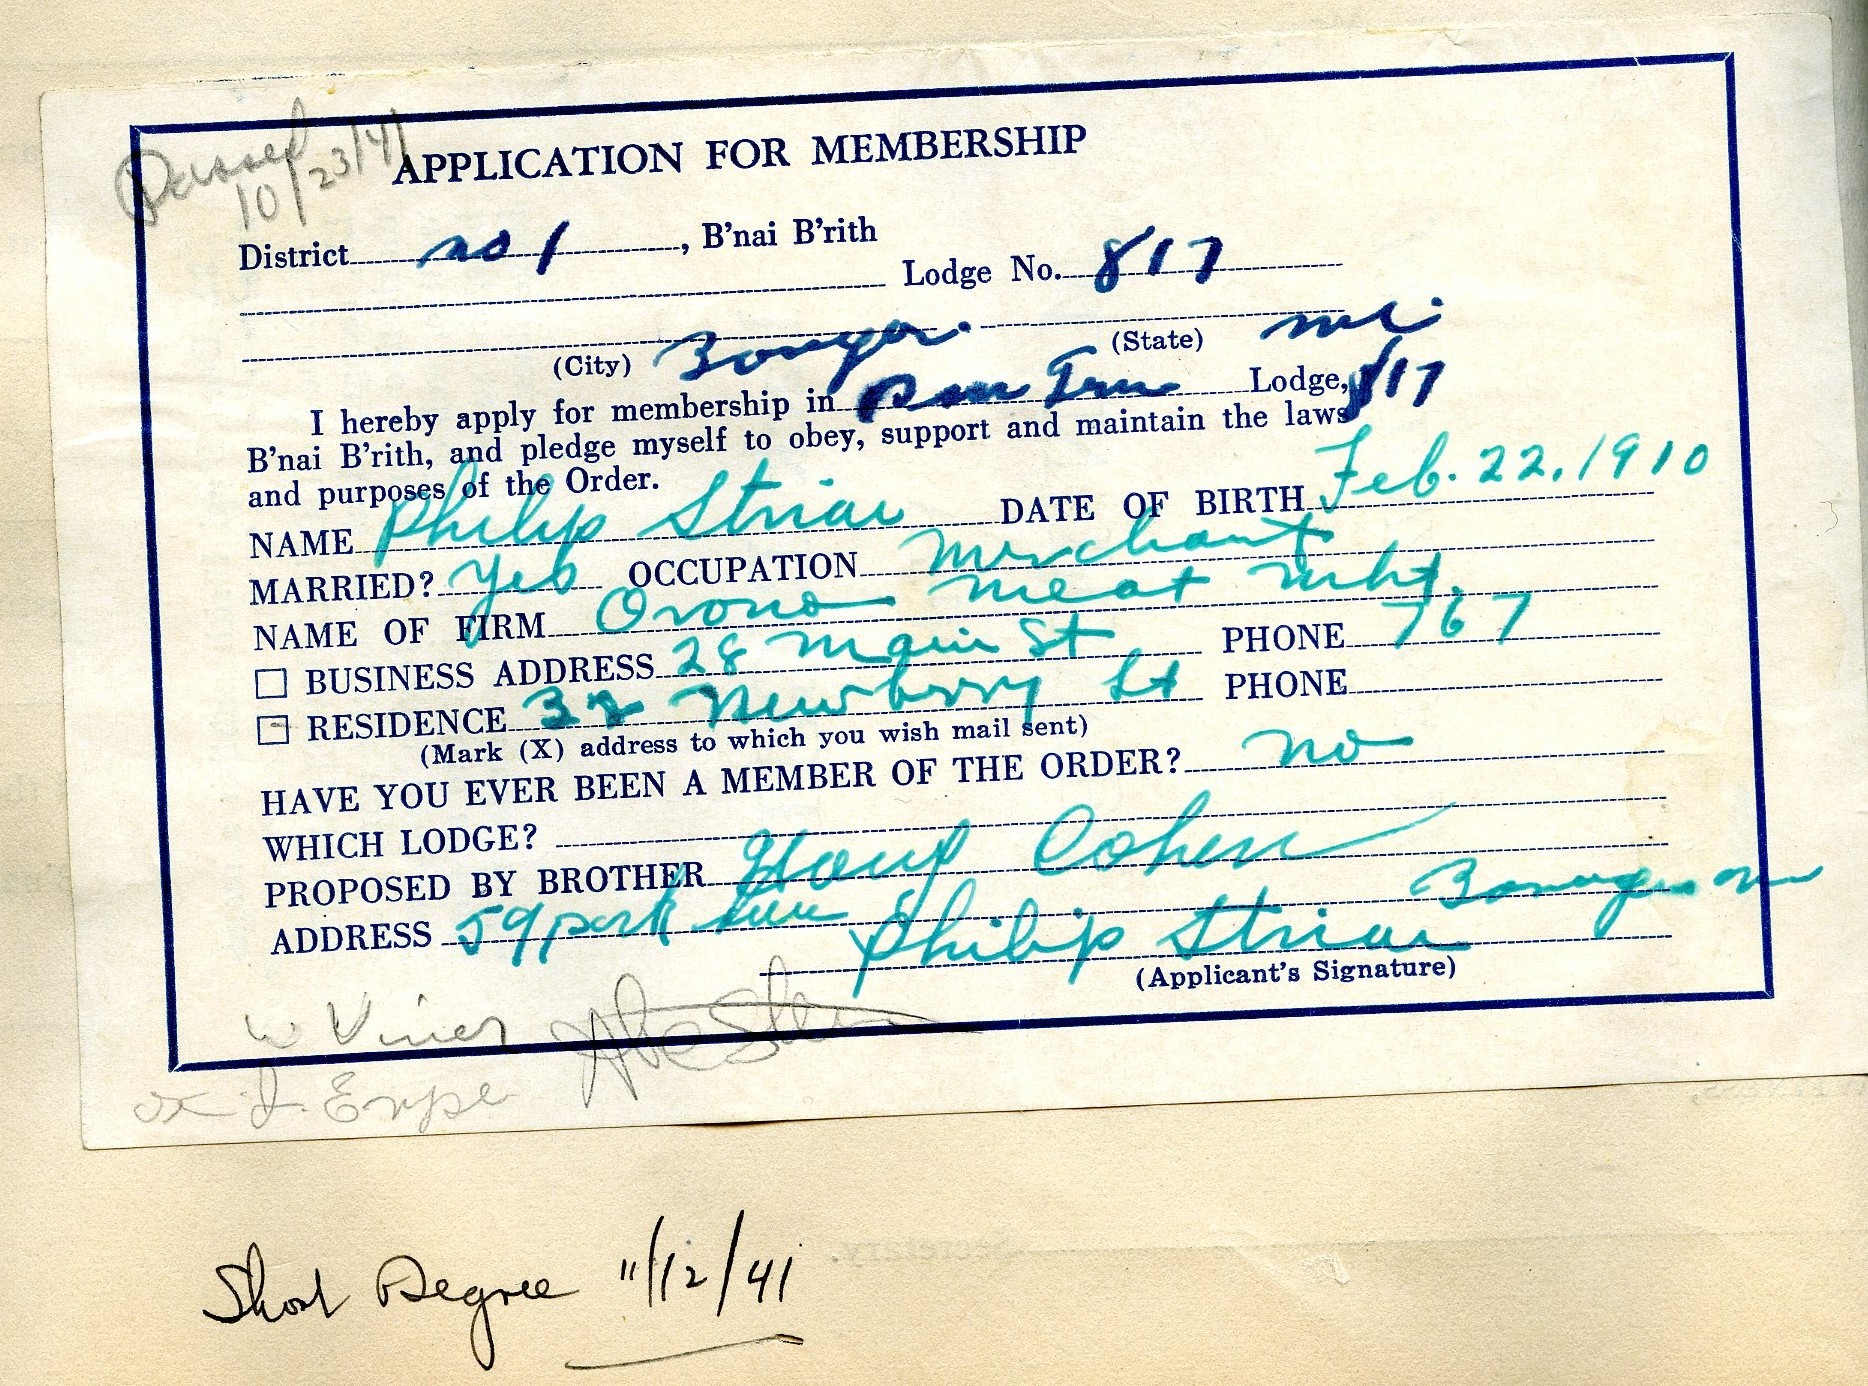 Passed
10/23/41
APPLICATION FOR MEMBERSHIP
District no 1, B'nai B'rith
Lodge No. 817
(City) Bangor. (State) Me.
I hereby apply for membership in Lodge, 817
B'nai B'rith, and pledge myself to obey, support and maintain the laws
and purposes of the Order.
NAME Philip Striar DATE OF BIRTH Feb. 22, 1910
MARRIED? Yes OCCUPATION Merchant
NAME OF FIRM Orono Meat Mkt.
BUSINESS ADDRESS 28 Main St PHONE 767
RESIDENCE Newbrry St PHONE
(Mark (X) address to which you wish mail sent)
HAVE YOU EVER BEEN A MEMBER OF THE ORDER? no
WHICH LODGE?
PROPOSED BY BROTHER Cohen
ADDRESS 59 park Bangor Me
Philip Striar
(Applicant's Signature)
W Viner Abe Stern
OK J. Emple
Short Degree 11/12/41